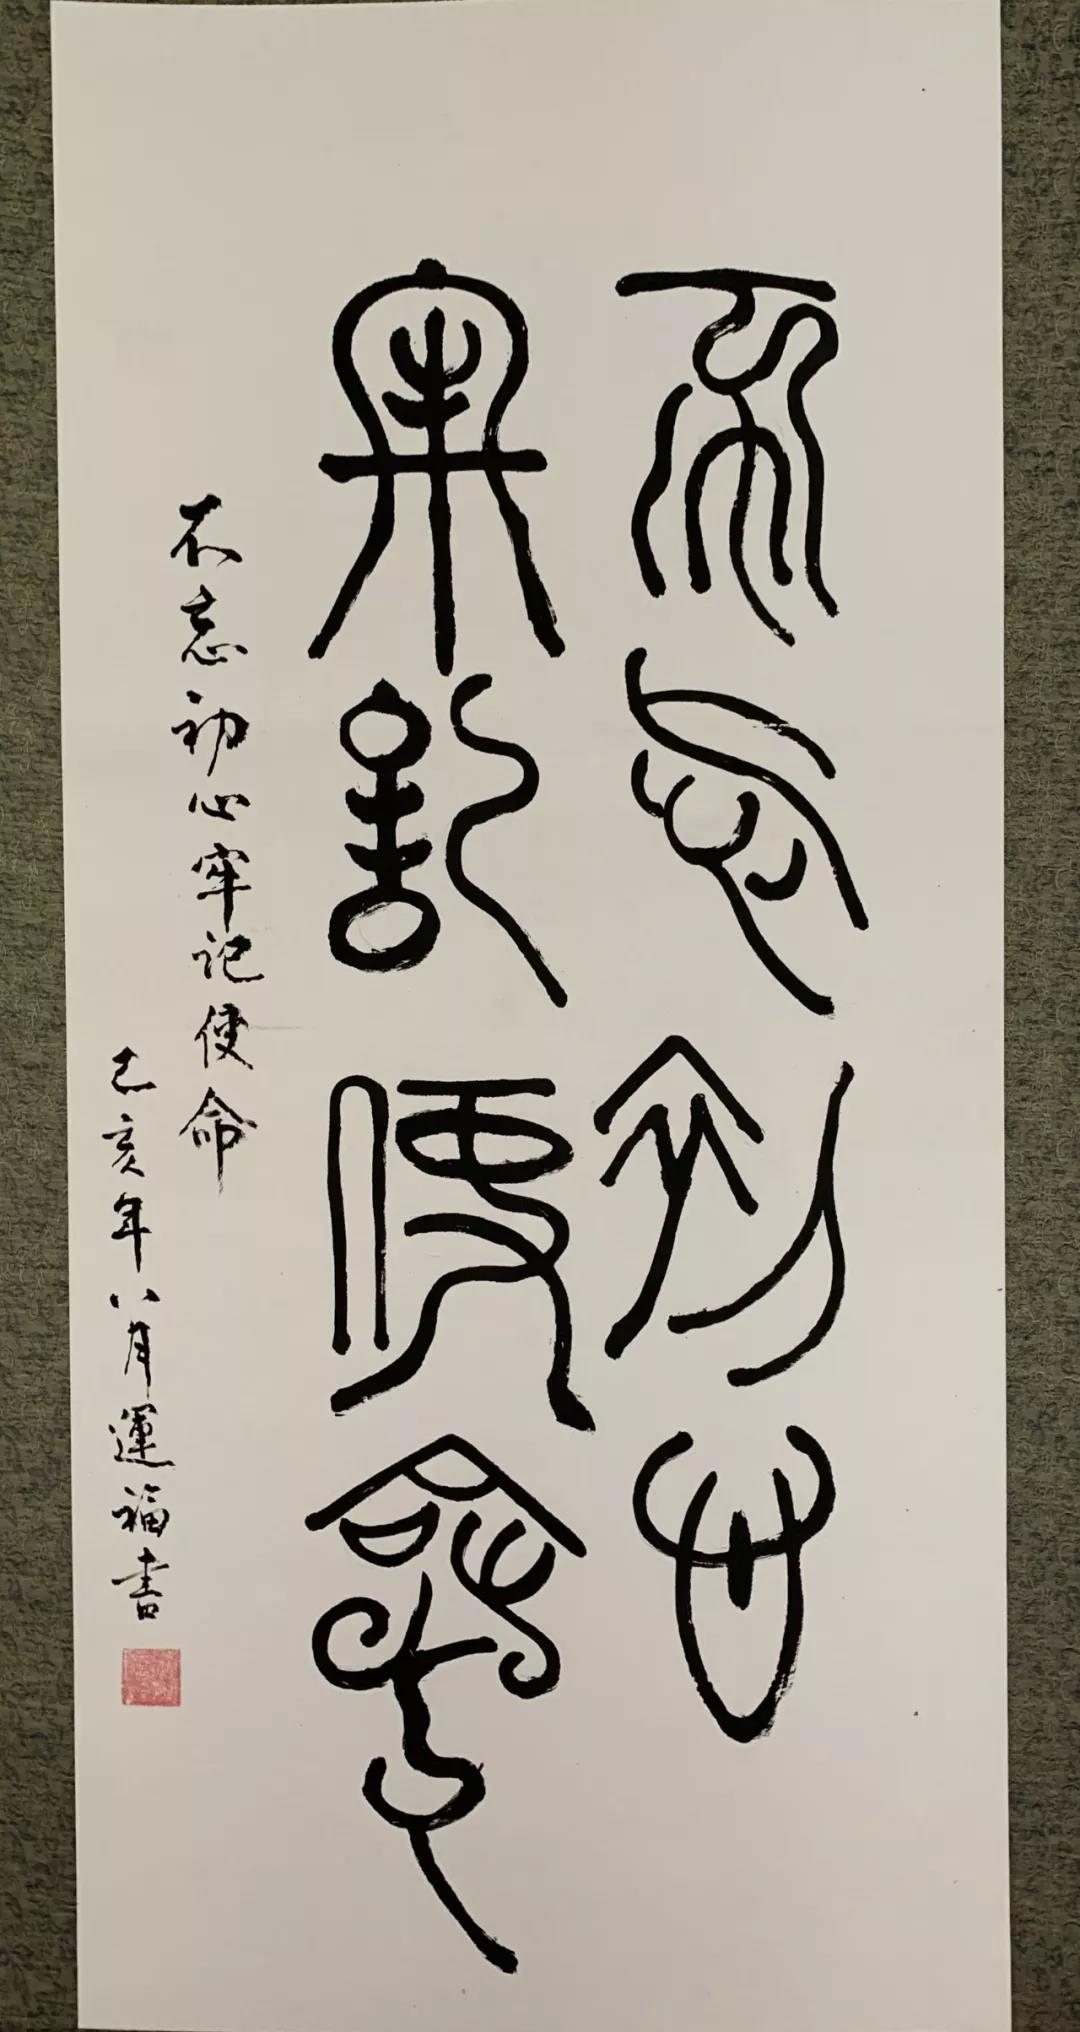 不忘初心
牢記使命
不忘初心牢记使命
己亥年八月運福書